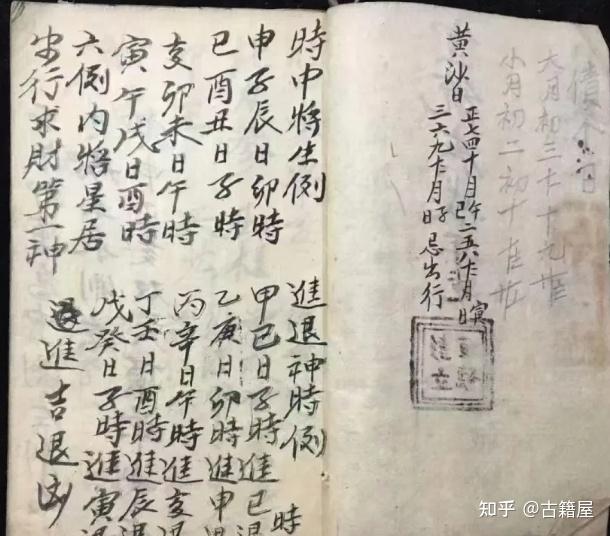 大月初三
小月初二初十
黄沙日
正七四十月午日二五八十二月寅日
三六九十二月子日忌出行
時中將生例
申子辰日卯時
巳酉丑日子時
亥卯未日午時
寅午戌日酉時
六例内將星居
出行求財第一神
進退神時例
甲己日子時進巳退時
乙庚日卯時進申
丙辛日午時進亥退
丁壬日酉時進辰退
戊癸日子時進寅退
進吉退凶
知乎 @古籍屋